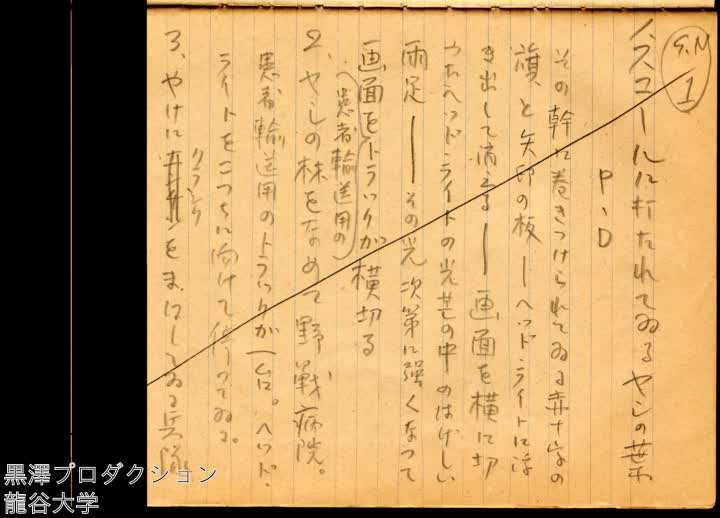 S.N
1
1、スコールに打たれてゐるヤシの葉
P、D
その幹に巻きつけられてゐる赤十字の
旗、と矢印の板 ― ヘッド・ライトに浮
き出して消える ― 画面を横に切
ヘッド・ライトの光芒の中のはげしい
雨足 ― その光次第に強くなって
画面をトラックが横切る
(患者輸送用の)
2、ヤシの林をなめて野戦病院。
患者輸送用のトラックが一台。ヘッド・
ライトをこっちに向けて停ってゐる。
3、やけにクランクをまはしてゐる兵隊
黒澤プロダクション
龍谷大学